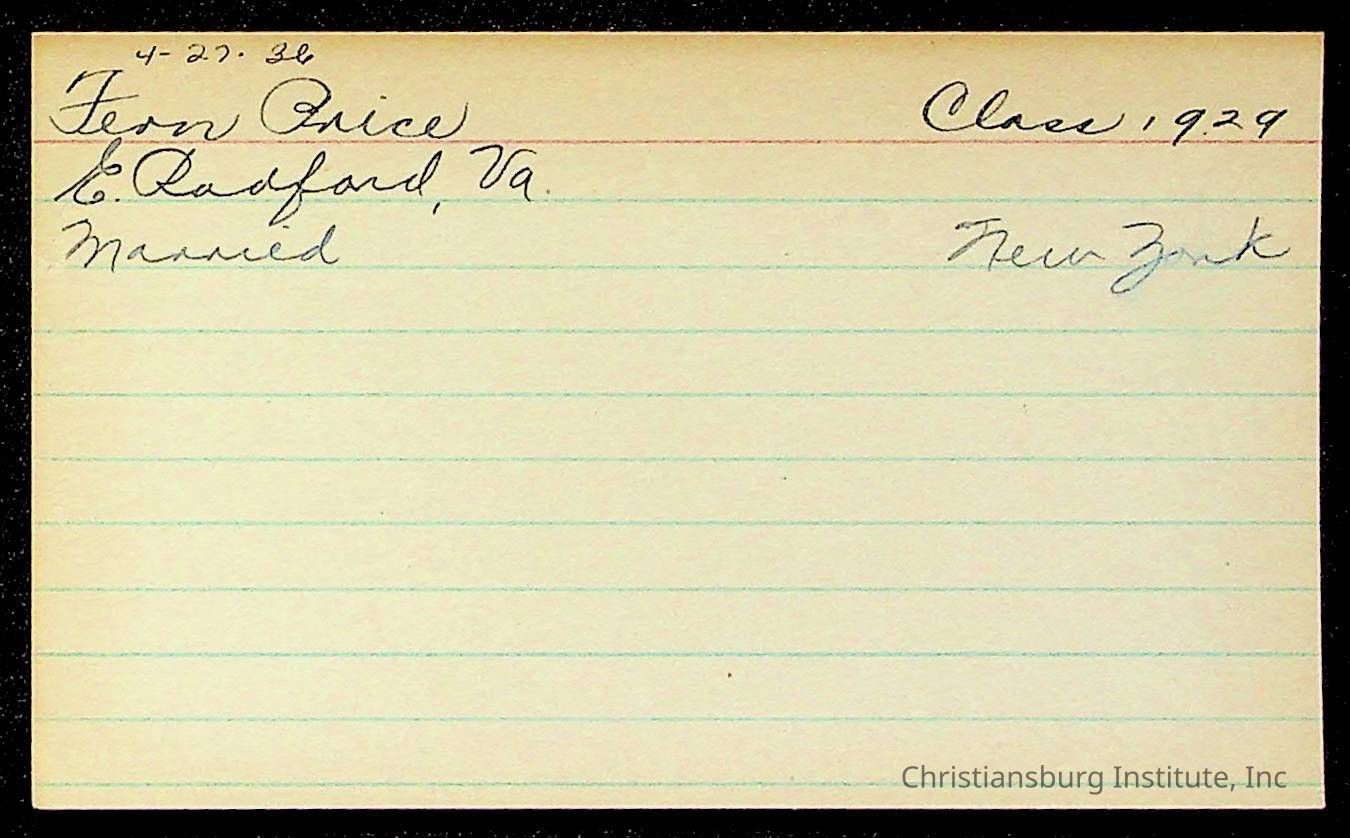 4-27-36
Fern Price Class 1929
E. Radford, Va.
Married New York
Christiansburg Institute, Inc